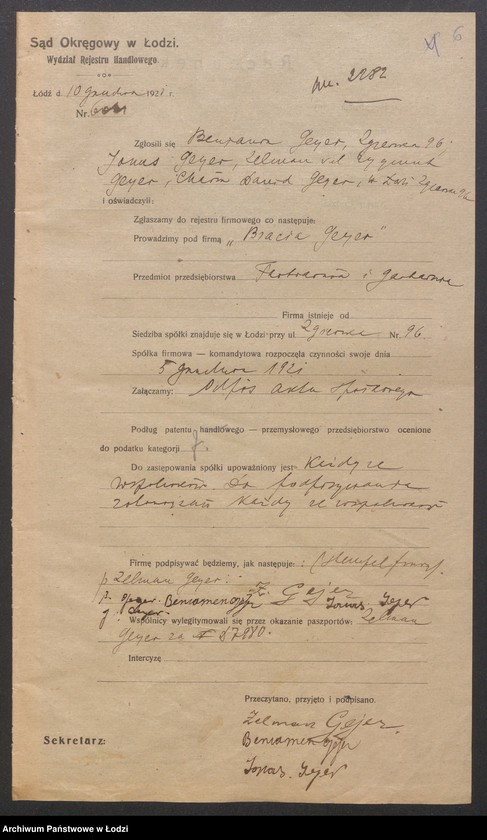 6
Sąd Okręgowy w Łodzi.
Wydział Rejestru Handlowego.
Łódź d. 10 grudnia 1921 r
2282
Nr.
Zgłosili się Geyer, Zgierska 96,
Jonas Geyer, Zelman Zygmunt
Geyer, Dawid Geyer, w Łodzi Zgierska 96
i oświadczyli:
Zgłaszamy do rejestru firmowego co następuje:
Prowadzimy pod firmą „Bracia Geyer"
Przedmiot przedsiębiorstwa Farbiarnia i garbarnia
Firma istnieje od
Siedziba spółki znajduje się w Łodzi przy ul. Zgierska Nr. 96
Spółka firmowa — komandytowa rozpoczęła czynności swoje dnia
5 grudnia 1921
Załączamy: Odpis aktu spółkowego
Podług patentu handlowego — przemysłowego przedsiębiorstwo ocenione
do podatku kategorji
Do zastępowania spółki upoważniony jest Każdy ze
wspólników. Do podpisywania
zobowiązań każdy ze wspólników
Firmę podpisywać będziemy, jak następuje: (Stempel firmy)
p Zelman Geyer: Gejer
Beniamen Gejer Jonas Gejer
Wspólnicy wylegitymowali się przez okazanie paszportów: Zelman
Geyer za
Intercyzę
Przeczytano, przyjęto i podpisano.
Zelman Gejer
Sekretarz:
Beniamen Gejer
Jonas Gejer
Archiwum Państwowe w Łodzi